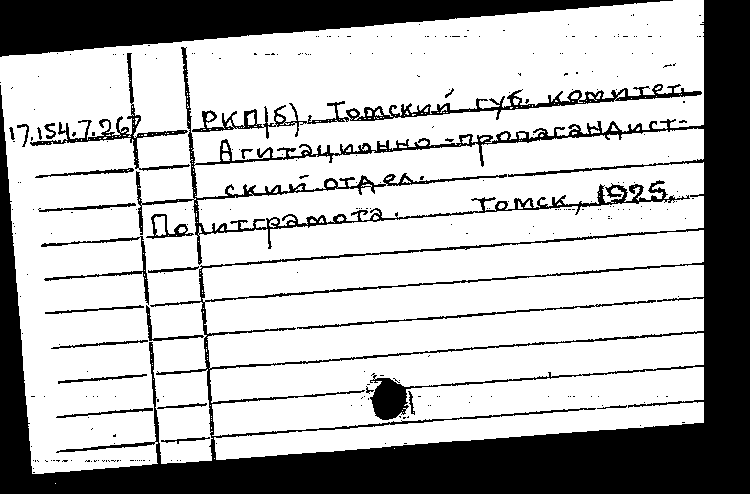 17.154.7.267 РКП(б). Томский губ. комитет.
Агитационно-пропагандист-
ский отдел.
Политграмота. Томск, 1925.